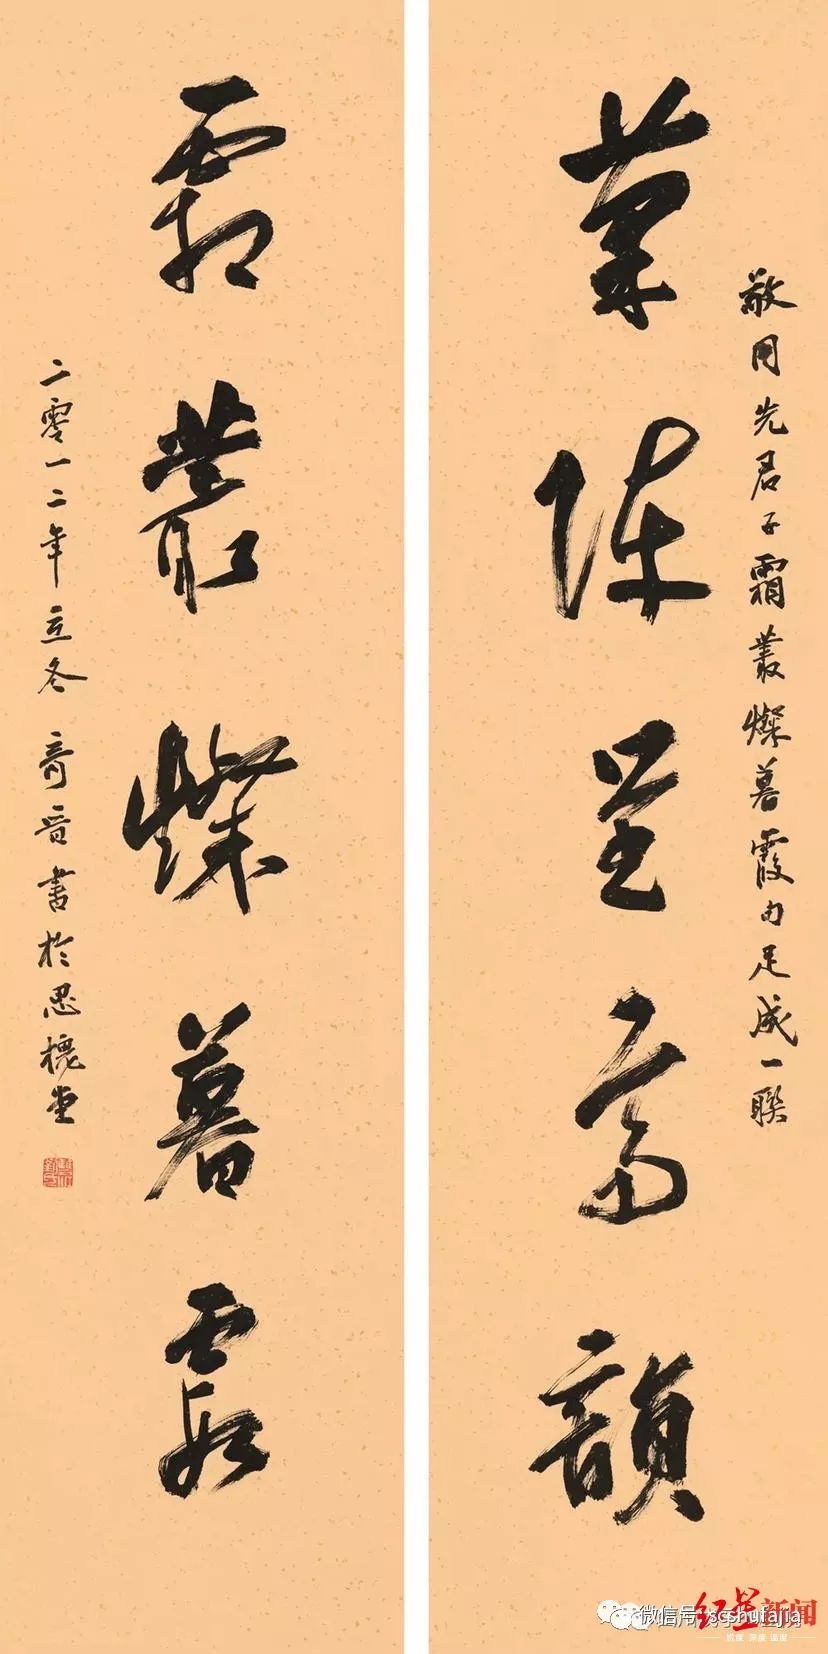 菊陣呈高韻
敬用先君子霜叢燦暮霞句足成一聯
霜叢燦暮霞
二零一二年立冬 奇晋書於思槐堂
微信号: scshufajia
红星新闻